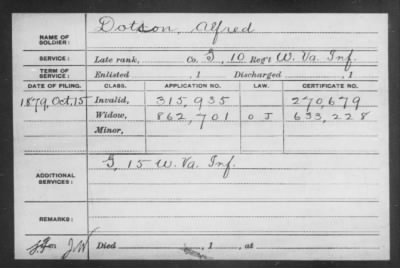 NAME OF SOLDIER: Dotson, Alfred
SERVICE: Late rank, Co. G, 10 Reg't W. Va. Inf.
TERM OF SERVICE: Enlisted , 1 Discharged , 1
DATE OF FILING. CLASS. APPLICATION NO. LAW. CERTIFICATE NO.
1879, Oct, 15 Invalid, 315,935 270,679
Widow, 862,701 O J 633,228
Minor,
ADDITIONAL SERVICES: G, 15 W. Va. Inf.
REMARKS:
J.W. Died , 1 , at